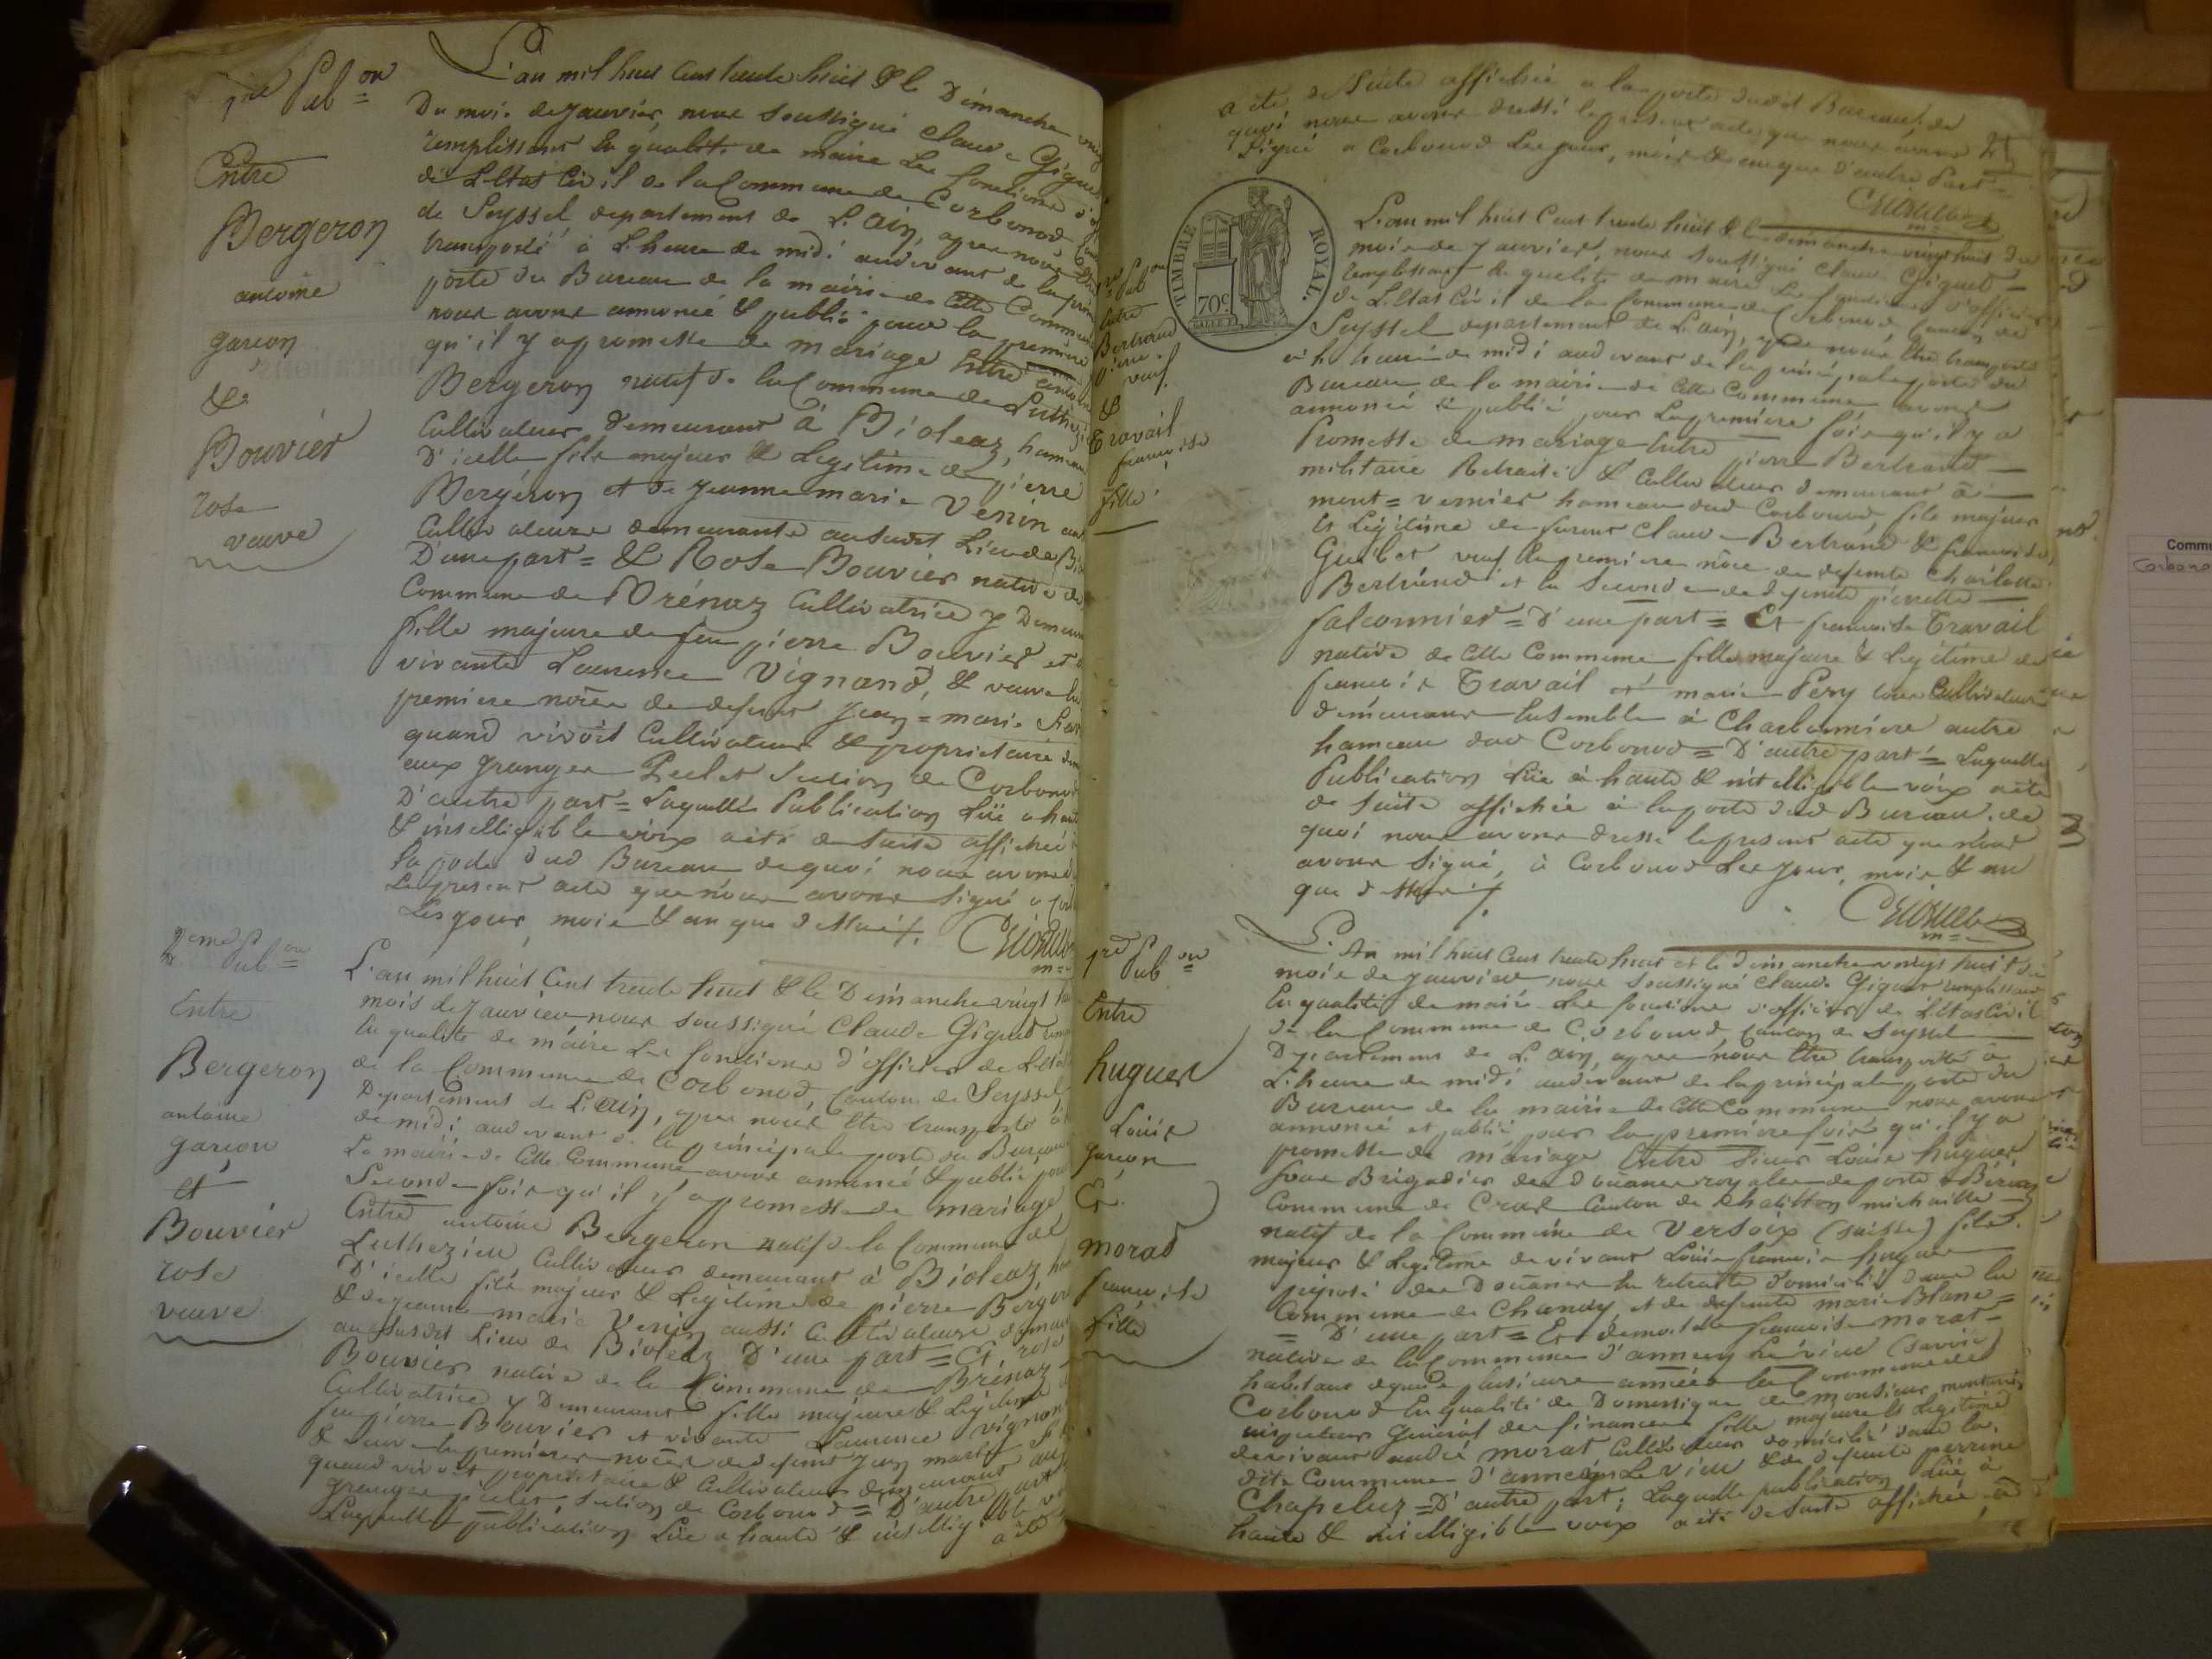 1ere Pub.on
Entre
Bergeron
antoine
garçon
&
Bouvier
rose
veuve
L'an mil huit Cent trente huit & le Dimanche vingt
Du mois de Janvier, nous soussigné Claude Giguet
remplissant la qualité de maire Les fonctions d'of
de L'Etat Civil de la Commune de Corbonod
de Seyssel departement de L'ain, apres nous être
transporté à L'heure de midi audevant de la prin
porte du Bureau de la mairie de cette Commune
nous avons annoncé & publié pour la premiere
qu'il y a promesse de mariage Entre antoine
Bergeron natif de la Commune de Luthezieu
Cultivateur demeurant à Bioleaz, hameau
D'icelle fils majeur & Legitime de pierre
Bergeron et de Jeanne marie Venin
Cultivateurs demeurants au susdit Lieu de Bi
D'une part = & Rose Bouvier native de
Commune de Brénaz Cultivatrice y Demeur
fille majeure de feu pierre Bouvier et
vivante Laurence Vignand, & veuve En
premiere noces de defunt Jean = marie
quand vivoit Cultivateur & proprietaire
aux granges Pselet Section de Corbonod
D'autre part = Laquelle Publication Lüe a haute
& intelligible voix a été de suite affichée
la porte dud Bureau de quoi nous avons
Le present acte que nous avons signé a
Les jour, mois & an que dessus /.
Giguet
m=
2eme Pub.on
Entre
Bergeron
antoine
garçon
et
Bouvier
rose
veuve
L'an mil huit Cent trente huit & le Dimanche vingt
mois de Janvier nous soussigné Claude Giguet
la qualité de maire Les fonctions d'officier de L'Etat
de la Commune de Corbonod, Canton de Seyssel
Departement de L'ain, apres nous être transporté à
de midi audevant de la principale porte du Bureau
La mairie de Cette Commune avons annoncé & publié pour
Seconde fois qu'il y a promesse de mariage
Entre antoine Bergeron natif de la Commune de
Luthezieu Cultivateur demeurant à Bioleaz,
D'icelle fils majeur & Legitime de pierre Berger
& de jeanne marie Venin aussi Cultivateurs demeu
au susdit Lieu de Bioleaz D'une part = Et rose
Bouvier native de la Commune de Brénaz
Cultivatrice y Demeurant fille majeure & Legitime
feu pierre Bouvier et vivante Laurence vignan
& veuve En premiere noces de defunt Jean marie
quand vivoit proprietaire & Cultivateur demeurant aux
granges pselet, section de Corbonod = D'autre part
Laquelle publication Lüe a haute & intelligible
a été
a été de Suite affichée a la porte dudit Bureau. de
quoi nous avons dressé le present acte que nous avons
Signé a Corbonod Les jour, mois & an que d'autre Part =
Giguet
m=
TIMBRE ROYAL.
70c
1re Pub.on
Entre
Bertrand
pierre
veuf
&
Travail
françoise
fille
L'an mil huit Cent trente huit & le dimanche vingt huit du
mois de Janvier, nous soussigné Claude Giguet
remplissant la qualité de maire Les fonctions d'officier
de L'Etat Civil de la Commune de Corbonod, Canton de
Seyssel departement de L'ain, apres nous être transporté
à L'heure de midi audevant de la principale porte du
Bureau de la mairie de Cette Commune avons
annoncé & publié pour La premiere fois qu'il y a
Promesse de mariage Entre pierre Bertrand
militaire Retraité & Cultivateur demeurant à
mont = vernier hameau dud Corbonod, fils majeur
& Legitime de furent Claude Bertrand & francoise
Guibet veuf En premiere noce de defunte Charlotte
Bertrand et En Seconde de defunte pierrette
falconnier = D'une part = Et francoise Travail
native de Cette Commune fille majeure & Legitime de
francois Travail et marie Pery tous Cultivateurs
demeurant Ensemble à Charbonniere autre
hameau dud Corbonod = D'autre part = Laquelle
Publication Lüe à haute & intelligible voix a été
de suite affichée a la porte dud Bureau. de
quoi nous avons dressé le present acte que nous
avons Signé, à Corbonod Les jour, mois & an
que dessus /.
Giguet
m=
1re Pub.on
Entre
huguet
Louis
garçon
&
morat
francoise
fille
L'An mil huit Cent trente huit et le dimanche vingt huit du
mois de janvier nous soussigné Claude Giguet remplissant
la qualité de maire Les fonctions d'officier de L'Etat Civil
de la Commune de Corbonod, Canton de Seyssel
Departement de L'ain, apres nous être transporté à
L'heure de midi audevant de la principale porte du
Bureau de la mairie de Cette Commune nous avons
annoncé et publié pour la premiere fois qu'il y a
promesse de mariage Entre Sieur Louis huguet
sous Brigadier des douanes royales de poste
Commune de Craz Canton de Chatillon michaille
natif de la Commune de Versoix (Suisse) fils
majeur & Legitime de vivant Loüis francois huguet
préposé des Doüanes En retraite domicilié dans la
Commune de Chancy et de defunte marie Blanc =
= D'une part = Et demoiselle francoise morat =
native de la Commune d'annecy Le vieux (Savoie)
habitant depuis plusieurs années la Commune de
Corbonod En qualité de Domestique de monsieur
inspecteur Général des finances fille majeure & Legitime
de vivant andré morat Cultivateur domicilié dans la
dite Commune d'annecy Le vieu & de defunte perrine
Chapeluz = D'autre part ; Laquelle publication Lüe à
haute & intelligible voix a été de suite affichée, à
Corbono